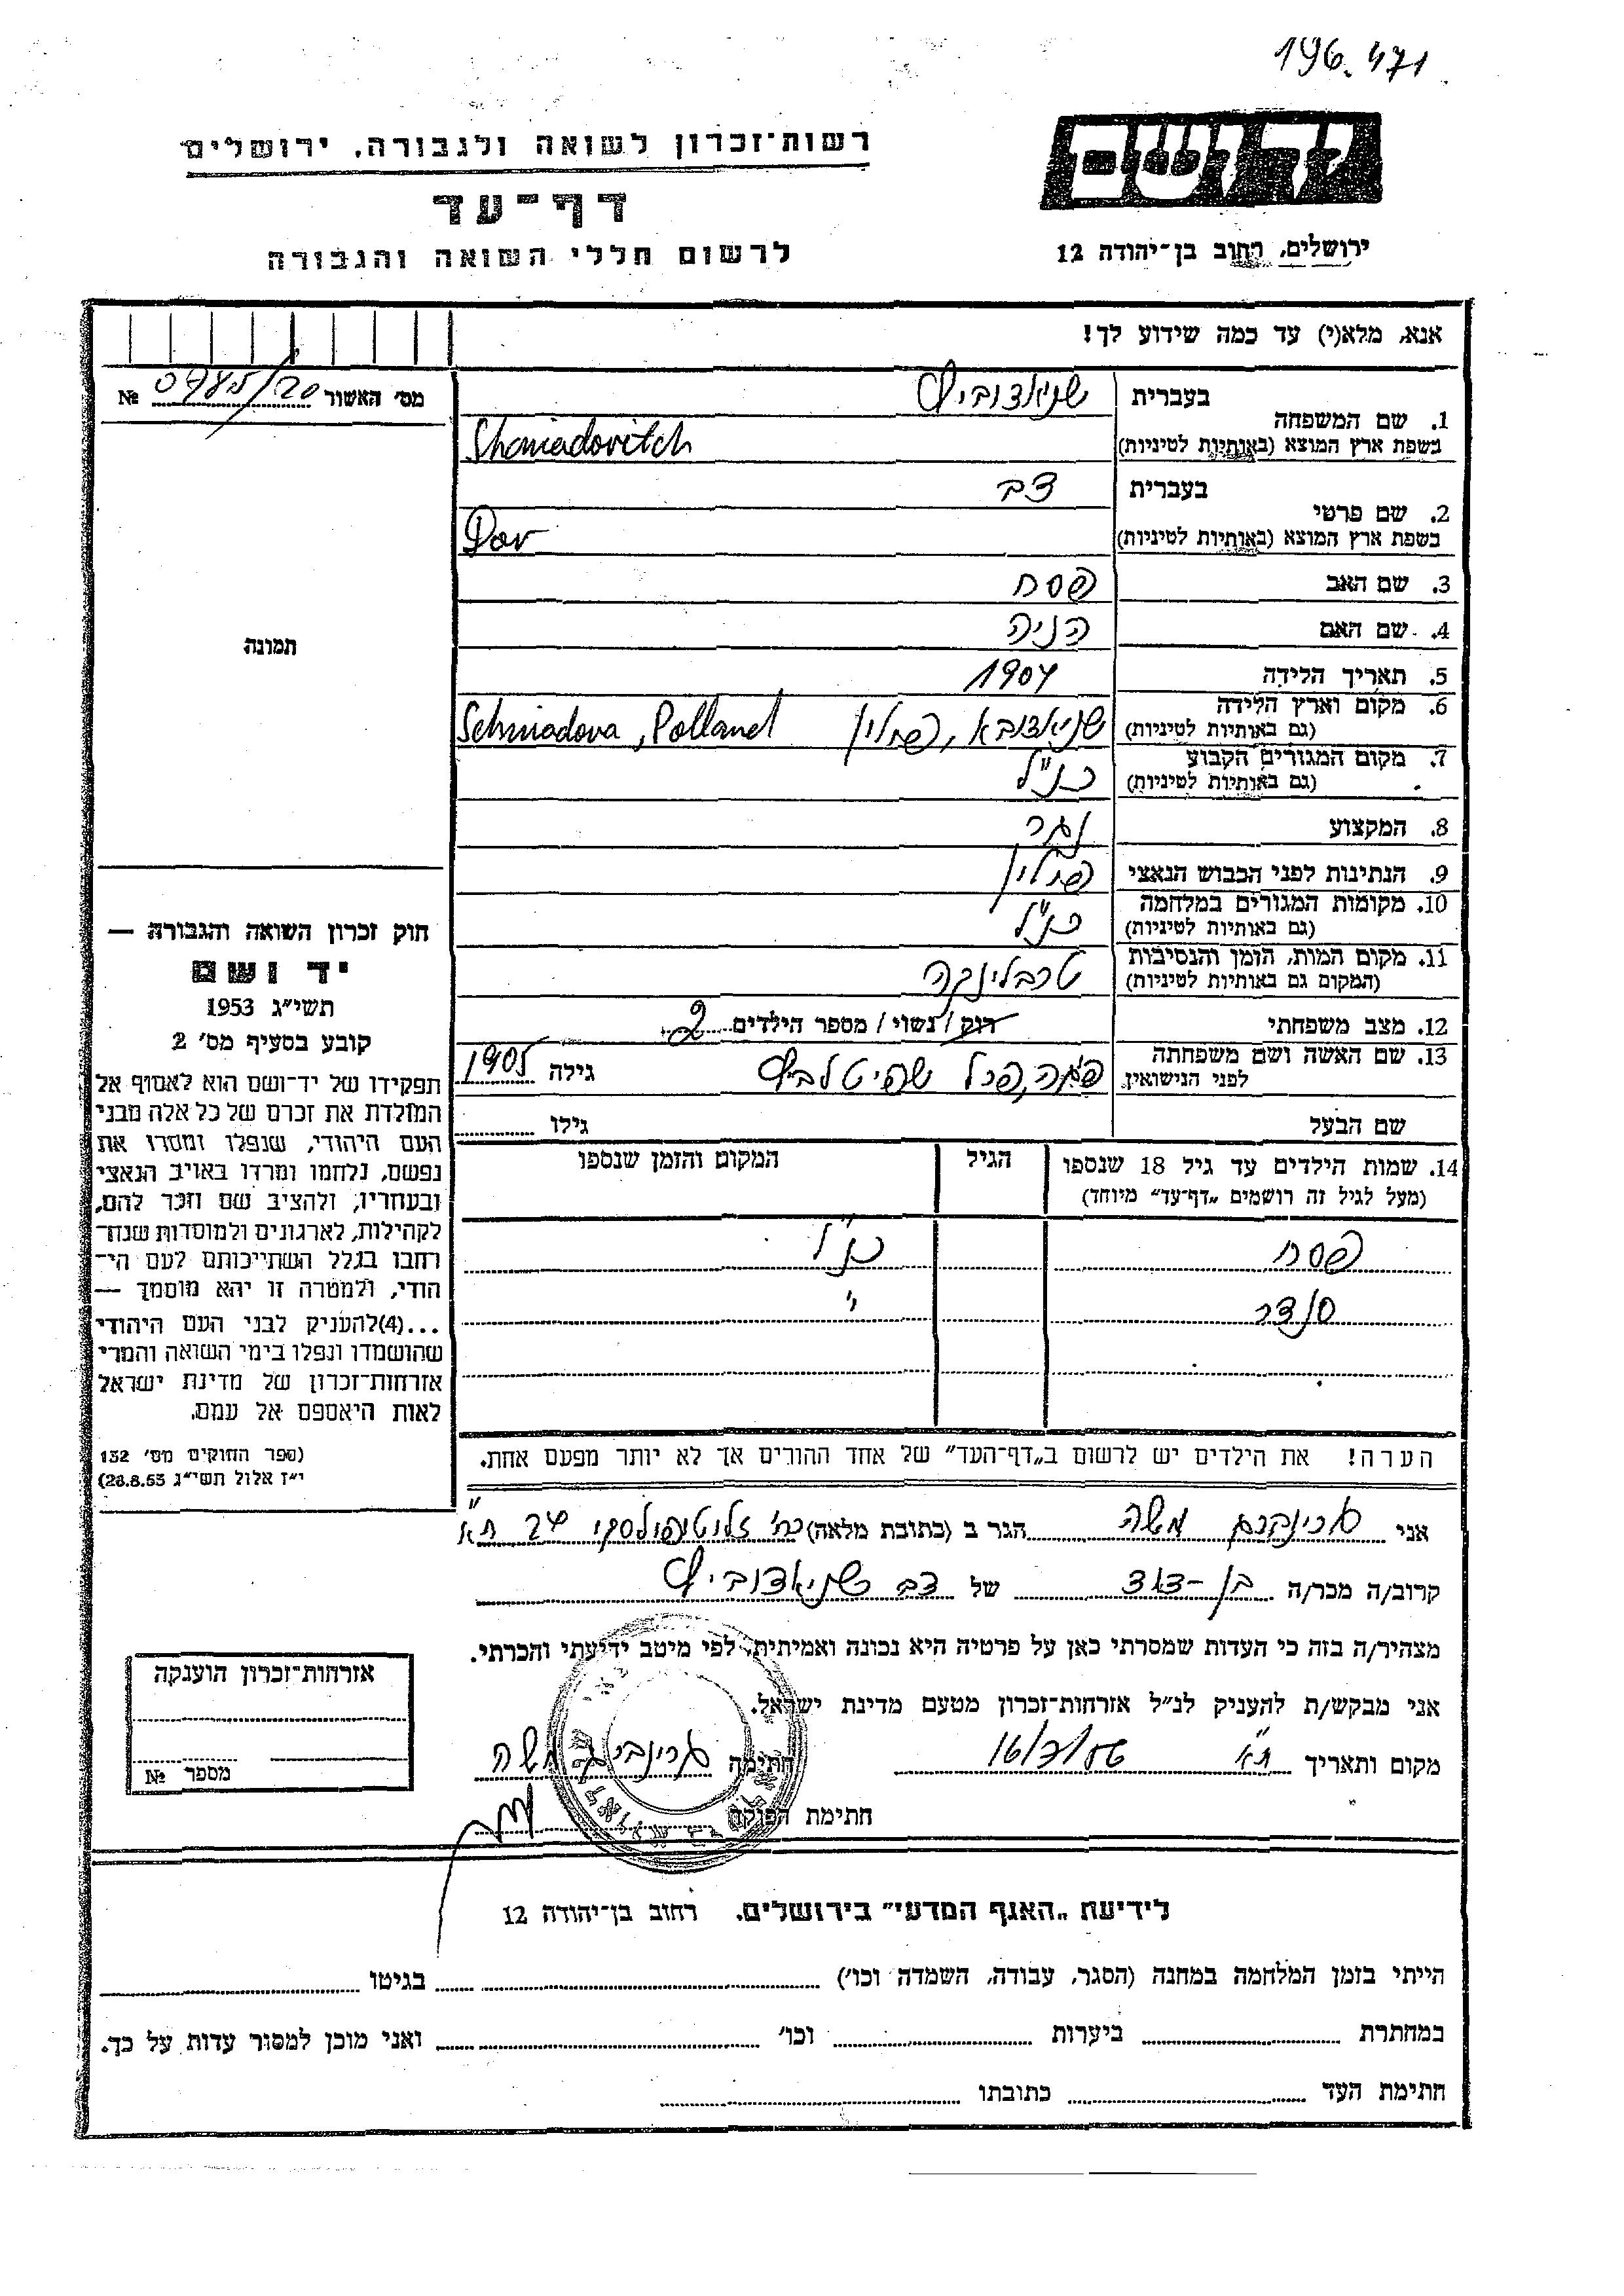 196.471
יד ושם
רשות־זכרון לשואה ולגבורה, ירושלים
דף־עד
ירושלים, רחוב בן־יהודה 12
לרשום חללי השואה והגבורה
אנא, מלא(י) עד כמה שידוע לך!
מס׳ האשור 0985/20 №
1. שם המשפחה
בעברית שניאדוביץ
בשפת ארץ המוצא (באותיות לטיניות) Shaniadovitch
2. שם פרטי
בעברית דב
בשפת ארץ המוצא (באותיות לטיניות) Dov
3. שם האב פסח
4. שם האם הניה
5. תאריך הלידה 1904
6. מקום וארץ הלידה שניאדובא, פולין Schniadova, Polland
(גם באותיות לטיניות)
7. מקום המגורים הקבוע כנ"ל
(גם באותיות לטיניות)
8. המקצוע נגר
9. הנתינות לפני הכבוש הנאצי פולין
10. מקומות המגורים במלחמה כנ"ל
(גם באותיות לטיניות)
11. מקום המות, הזמן והנסיבות טרבלינקה
(המקום גם באותיות לטיניות)
12. מצב משפחתי רוק/נשוי/ מספר הילדים 2
13. שם האשה ושם משפחתה
לפני הנישואין
גילה 1905
שם הבעל גילו
14. שמות הילדים עד גיל 18 שנספו הגיל המקום והזמן שנספו
(מעל לגיל זה רושמים „דף־עד״ מיוחד)
פסח כנ"ל
סנדר "
הערה! את הילדים יש לרשום ב„דף־העד״ של אחד ההורים אך לא יותר מפעם אחת.
תמונה
חוק זכרון השואה והגבורה —
יד ושם
תשי״ג 1953
קובע בסעיף מס׳ 2
תפקידו של יד־ושם הוא לאסוף אל
המולדת את זכרם של כל אלה מבני
העם היהודי, שנפלו ומסרו את
נפשם, נלחמו ומרדו באויב הנאצי
ובעוזריו, ולהציב שם וזכר להם,
לקהילות, לארגונים ולמוסדות שנח־
רבו בגלל השתייכותם לעם הי־
הודי, ולמטרה זו יהא מוסמך —
...(4) להעניק לבני העם היהודי
שהושמדו ונפלו בימי השואה והמרי
אזרחות־זכרון של מדינת ישראל
לאות היאספם אל עמם.
(ספר החוקים מס׳ 132
י״ז אלול תשי״ג 28.8.53)
אני גרינברג משה הגר ב (כתובת מלאה) רח' זלוטופולסקי 24 ת"א
קרוב/ה מכר/ה בן-דוד של דב שניאדוביץ
מצהיר/ה בזה כי העדות שמסרתי כאן על פרטיה היא נכונה ואמיתית, לפי מיטב ידיעתי והכרתי.
אני מבקש/ת להעניק לנ״ל אזרחות־זכרון מטעם מדינת ישראל.
מקום ותאריך ת"א 16/3/56 חתימה גרינברג משה
חתימת הפוקד
אזרחות־זכרון הוענקה
מספר №
לידיעת „האגף המדעי״ בירושלים. רחוב בן־יהודה 12
הייתי בזמן המלחמה במחנה (הסגר, עבודה, השמדה וכו׳) בגיטו
במחתרת ביערות וכו׳ ואני מוכן למסור עדות על כך.
חתימת העד כתובתו